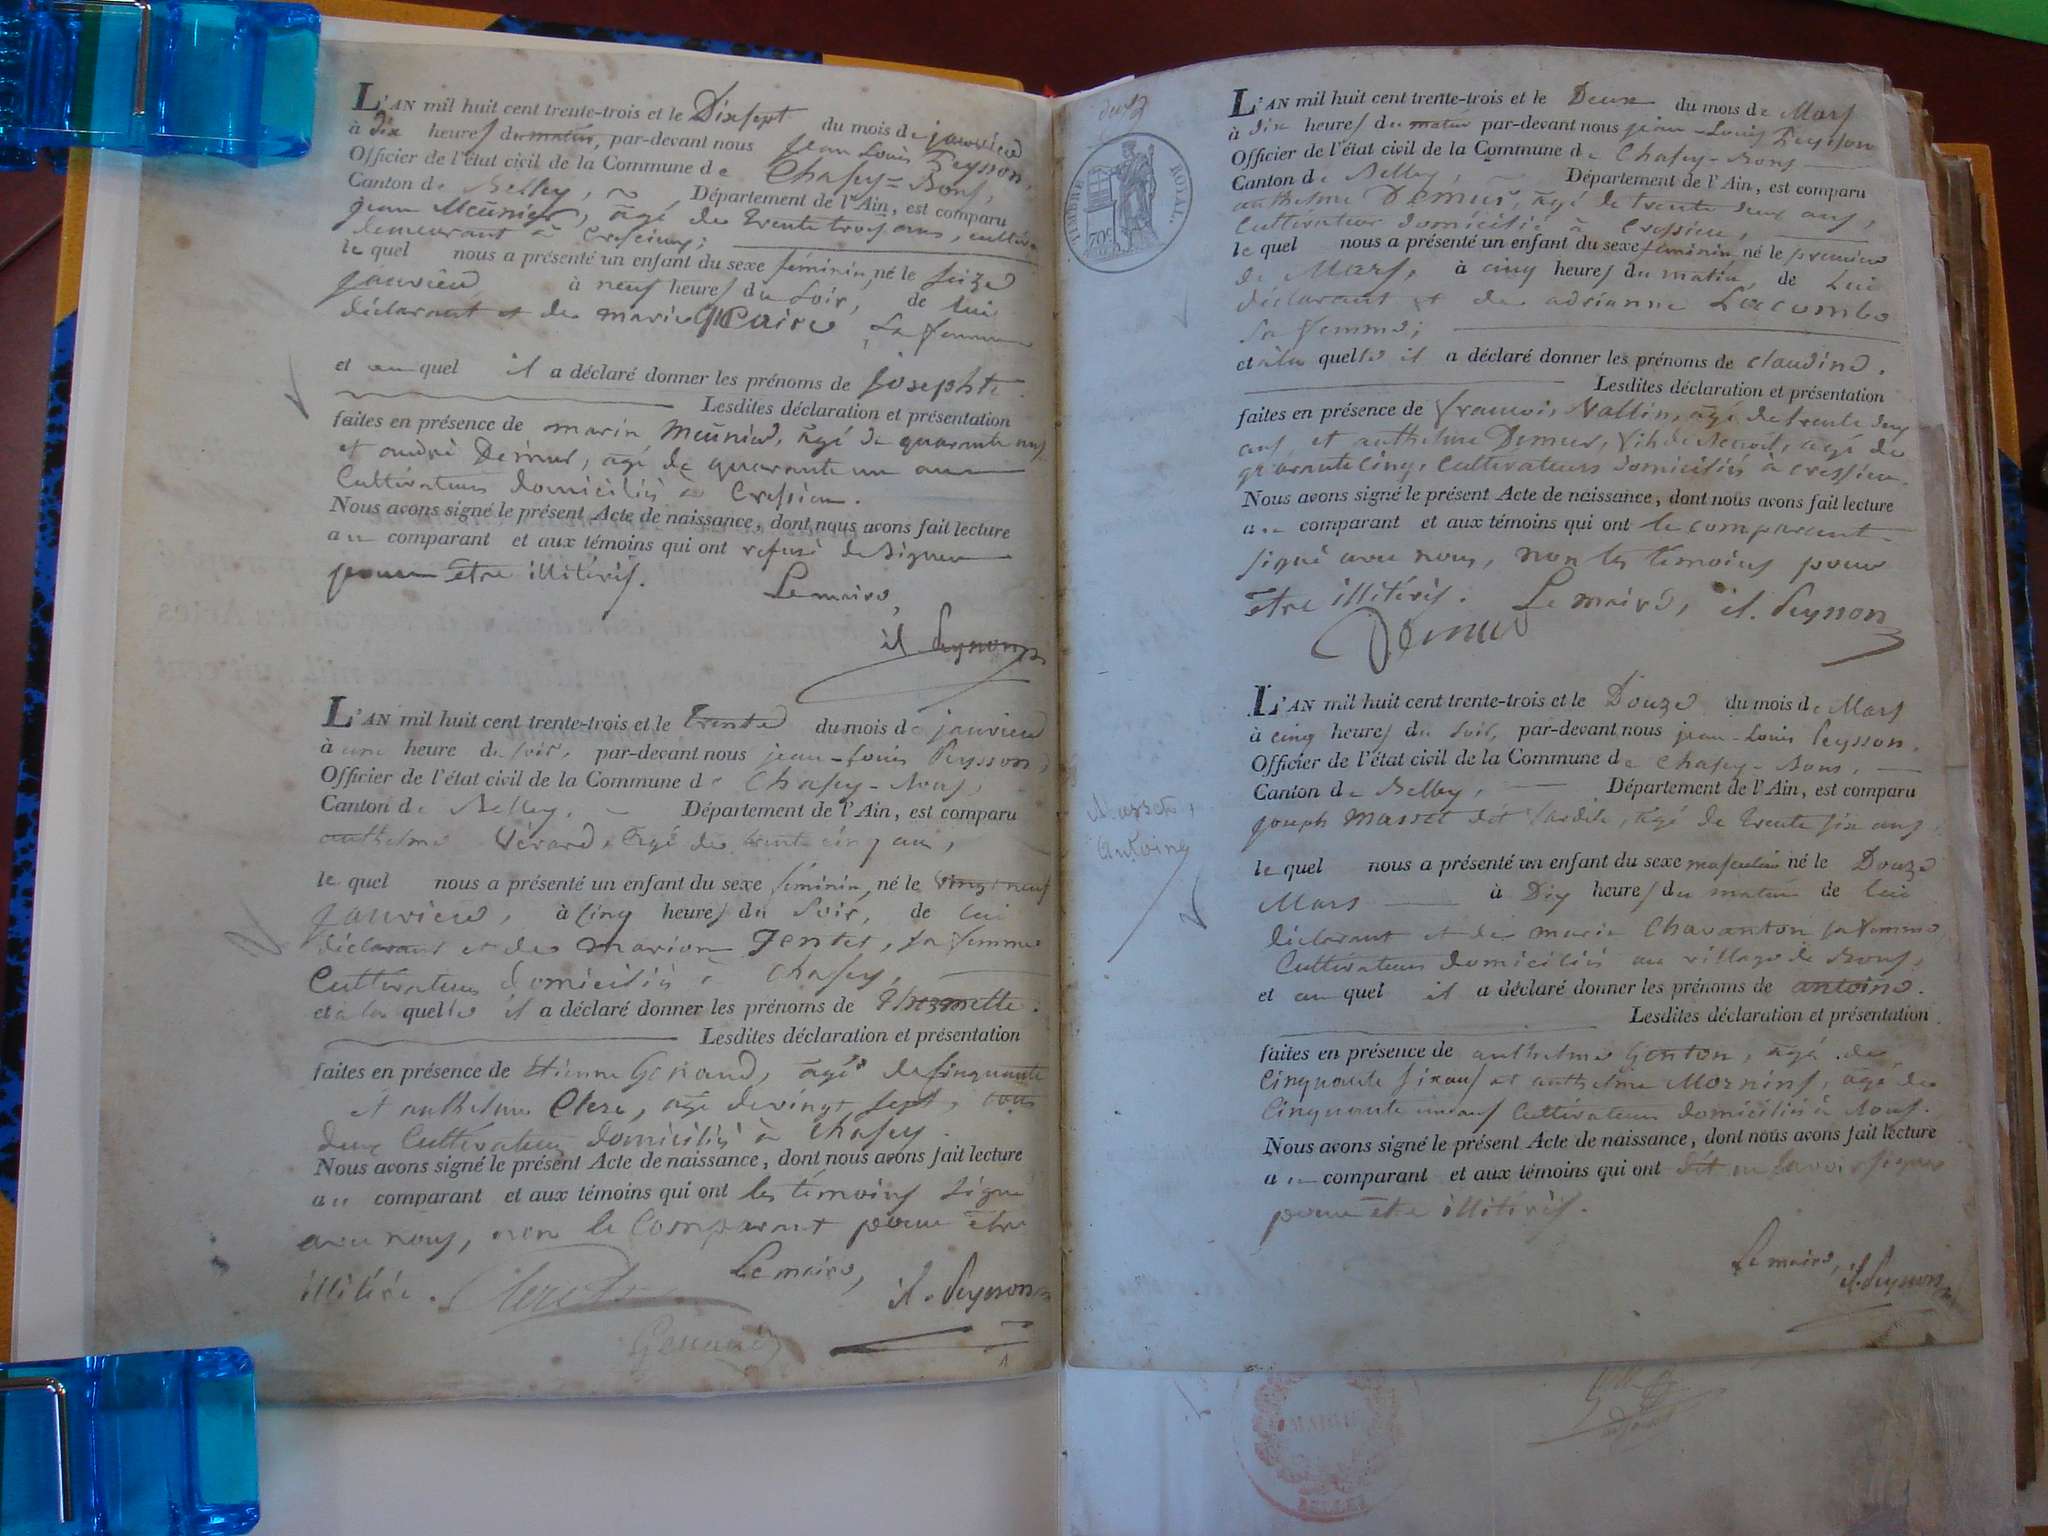 L'AN mil huit cent trente-trois et le Dixsept du mois de janvier
à dix heures du matin, par-devant nous jean Louis Peysson,
Officier de l'état civil de la Commune de Chasey-Bons,
Canton de Belley, Département de l'Ain, est comparu
jean Meunier, agé de trente trois ans,
demeurant à
le quel nous a présenté un enfant du sexe féminin, né le seize
janvier à neuf heures du soir, de lui
déclarant et de marie sa femme
et au quel il a déclaré donner les prénoms de josephte.
Lesdites déclaration et présentation
faites en présence de marin Meunier, agé de quarante
et andré Demur, agé de quarante un ans
Cultivateurs domiciliés à Cressieu.
Nous avons signé le présent Acte de naissance, dont nous avons fait lecture
au comparant et aux témoins qui ont refusé de signer
pour être illitérés.
Le maire,
jl. Peysson
L'AN mil huit cent trente-trois et le trente du mois de janvier
à une heure du soir, par-devant nous jean-Louis Peysson,
Officier de l'état civil de la Commune de Chasey-Bons,
Canton de Belley, Département de l'Ain, est comparu
anthelme Vérard, agé de trente cinq ans,
le quel nous a présenté un enfant du sexe féminin, né le vingt neuf
janvier, à cinq heures du soir, de lui
déclarant et de marion jentet, sa femme
Cultivateurs domiciliés à Chasey,
et à la quelle il a déclaré donner les prénoms de
Lesdites déclaration et présentation
faites en présence de Etienne agé de cinquante
et anthelme Clerc, agé de vingt sept, tous
deux Cultivateurs domiciliés à Chasey.
Nous avons signé le présent Acte de naissance, dont nous avons fait lecture
au comparant et aux témoins qui ont les témoins signé
avec nous, non le Comparant pour être
illitéré. Le maire, jl. Peysson
TIMBRE ROYAL
70c
L'AN mil huit cent trente-trois et le Deux du mois de Mars
à dix heures du matin par-devant nous jean-Louis Peysson
Officier de l'état civil de la Commune de Chasey-Bons
Canton de Belley, Département de l'Ain, est comparu
anthelme Demur, agé de trente deux ans,
Cultivateur domicilié à Cressieu,
le quel nous a présenté un enfant du sexe féminin, né le premier
de Mars, à cinq heures du matin, de lui
déclarant et de adrianne Lacombe
sa femme;
et à la quelle il a déclaré donner les prénoms de claudine.
Lesdites déclaration et présentation
faites en présence de francois Vallin, agé de trente deux
ans, et anthelme Demur, fils de Benoit, agé de
quarante cinq, Cultivateurs domiciliés à cressieu.
Nous avons signé le présent Acte de naissance, dont nous avons fait lecture
au comparant et aux témoins qui ont le comparant
signé avec nous, non les témoins pour
être illitérés. Le maire, jl. Peysson
Demur
L'AN mil huit cent trente-trois et le Douze du mois de Mars
à cinq heures du soir, par-devant nous jean-Louis Peysson,
Officier de l'état civil de la Commune de Chasey-Bons,
Canton de Belley, Département de l'Ain, est comparu
joseph Masset dit agé de trente six ans,
Masset,
Antoine
le quel nous a présenté un enfant du sexe masculin né le Douze
Mars à Dix heures du matin de lui
déclarant et de marie Chavanton sa femme
Cultivateurs domiciliés au village de Bons,
et au quel il a déclaré donner les prénoms de antoine.
Lesdites déclaration et présentation
faites en présence de anthelme Gonton, agé de
Cinquante six ans et anthelme agé de
Cinquante un ans Cultivateurs domiciliés à Bons.
Nous avons signé le présent Acte de naissance, dont nous avons fait lecture
au comparant et aux témoins qui ont dit ne savoir signer
pour être illitérés.
Le maire,
jl. Peysson
MAIRIE
BELLEY